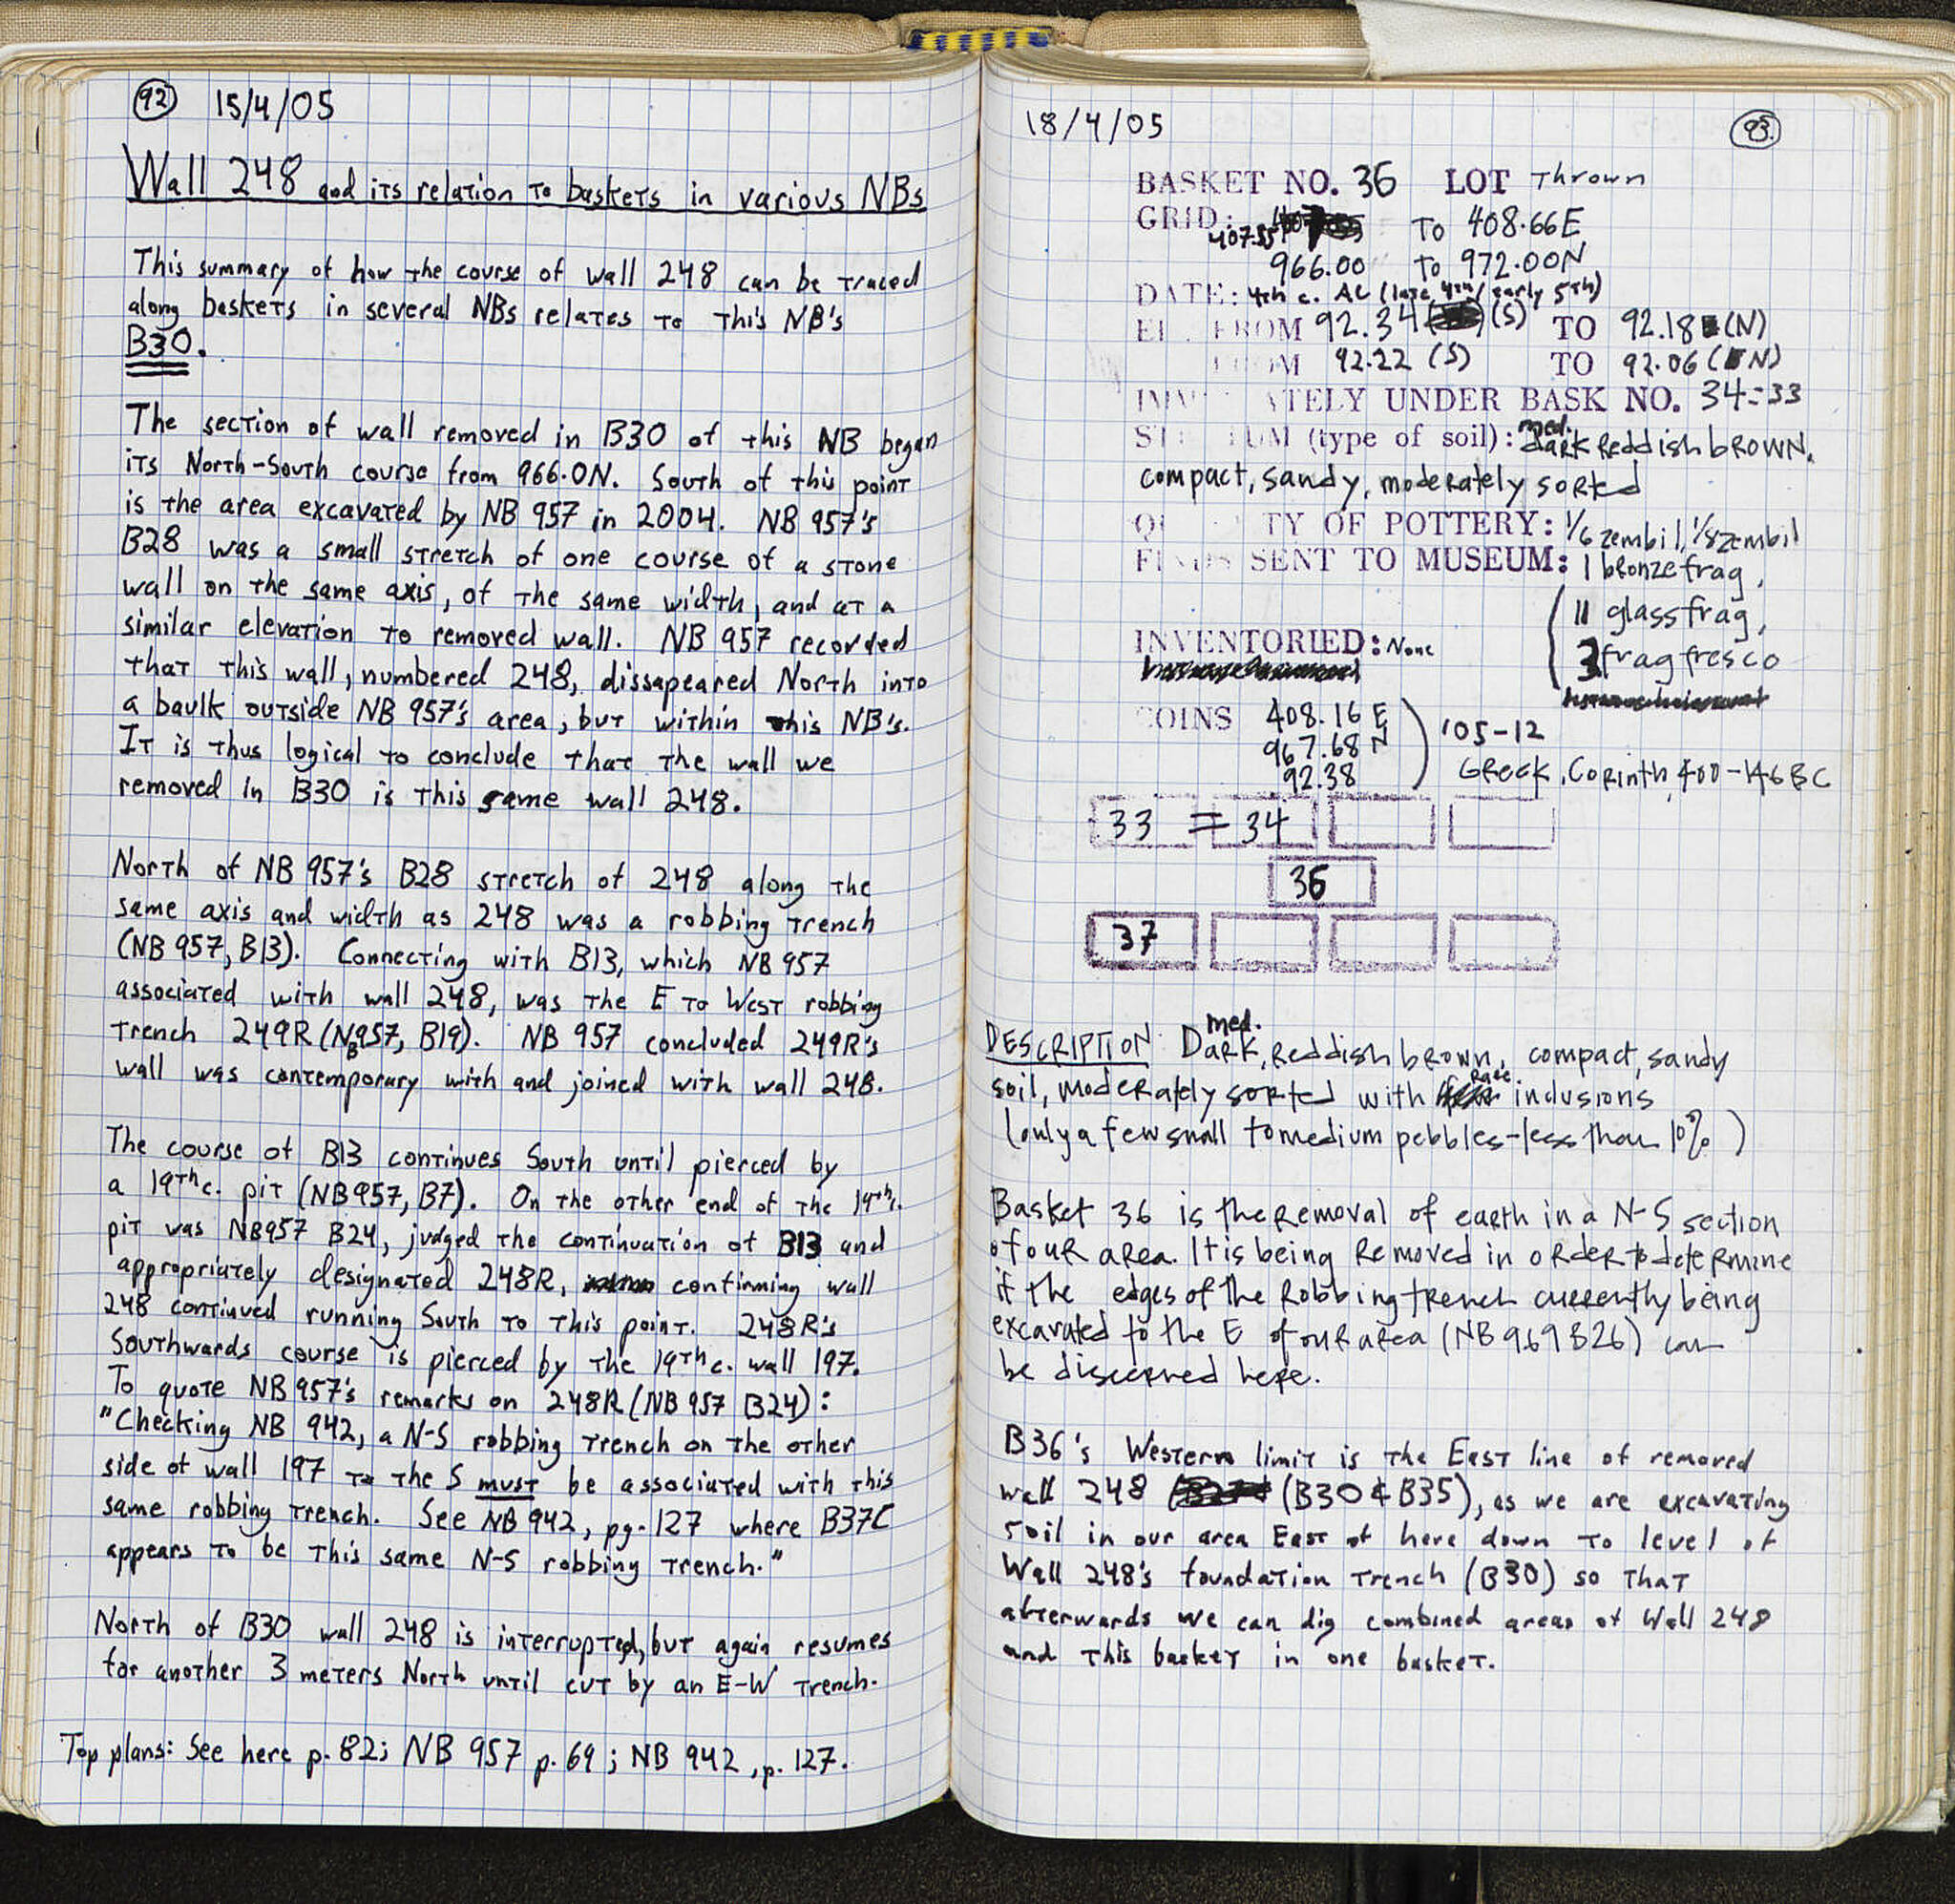 92 15/4/05
Wall 248 and its relation to baskets in various NBs
This summary of how the course of wall 248 can be traced
along baskets in several NBs relates to this NB's
B30.
The section of wall removed in B30 of this NB began
its North-South course from 966.0N. South of this point
is the area excavated by NB 957 in 2004. NB 957's
B28 was a small stretch of one course of a stone
wall on the same axis, of the same width, and at a
similar elevation to removed wall. NB 957 recorded
that this wall, numbered 248, dissapeared North into
a baulk outside NB 957's area, but within this NB's.
It is thus logical to conclude that the wall we
removed in B30 is this same wall 248.
North of NB 957's B28 stretch of 248 along the
same axis and width as 248 was a robbing trench
(NB 957, B13). Connecting with B13, which NB 957
associated with wall 248, was the E to West robbing
trench 249R (NB957, B19). NB 957 concluded 249R's
wall was contemporary with and joined with wall 248.
The course of B13 continues South until pierced by
a 19th c. pit (NB957, B7). On the other end of the 19th c.
pit was NB957 B24, judged the continuation of B13 and
appropriately designated 248R, confirming wall
248 continued running South to this point. 248R's
Southwards course is pierced by the 19th c. wall 197.
To quote NB957's remarks on 248R (NB 957 B24):
"Checking NB 942, a N-S robbing trench on the other
side of wall 197 to the S must be associated with this
same robbing trench. See NB 942, pg. 127 where B37C
appears to be this same N-S robbing trench."
North of B30 wall 248 is interrupted, but again resumes
for another 3 meters North until cut by an E-W trench.
Top plans: See here p. 82; NB 957 p. 69; NB 942, p. 127.
18/4/05 93.
BASKET NO. 36 LOT Thrown
GRID: 407.55 To 408.66E
966.00 To 972.00N
DATE: 4th c. AC (late 4th/early 5th)
EL. FROM 92.34 (S) TO 92.18 (N)
FROM 92.22 (S) TO 92.06 (N)
IMMEDIATELY UNDER BASK NO. 34=33
STRATUM (type of soil): med. dark Reddish bROWN.
compact, sandy, moderately sorted
QUANTITY OF POTTERY: 1/6 zembil, 1/8 zembil
FINDS SENT TO MUSEUM: 1 bronze frag,
11 glass frag,
INVENTORIED: None
3 frag fresco
COINS 408.16 E
967.68 N
92.38
'05-12
Greek, Corinth, 400-146 BC
33 = 34
36
37
DESCRIPTION: Dark, med. Reddish brown, compact, sandy
soil, moderately sorted with Rare inclusions
(only a few small to medium pebbles - less than 10%)
Basket 36 is the removal of earth in a N-S section
of our area. It is being Removed in order to determine
if the edges of the Robbing trench currently being
excavated to the E of our area (NB 969 B26) can
be discerned here.
B36's Western limit is the East line of removed
wall 248 (B30 & B35), as we are excavating
soil in our area East of here down to level of
Wall 248's foundation trench (B30) so that
afterwards we can dig combined areas of Wall 248
and this basket in one basket.